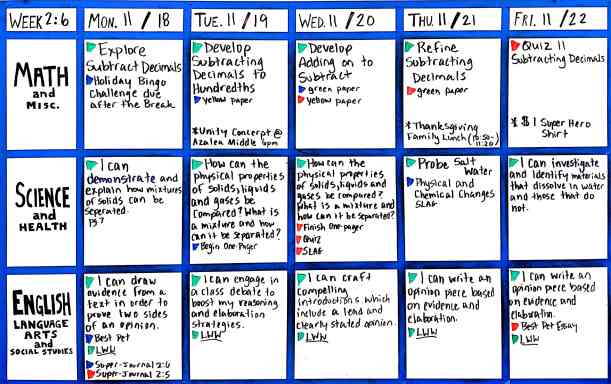 WEEK 2:6
MON. 11/18
TUE. 11/19
WED. 11/20
THU. 11/21
FRI. 11/22
MATH
and
MISC.
Explore
Subtract Decimals
Holiday Bingo
Challenge due
after the Break
Develop
Subtracting
Decimals to
Hundredths
yellow paper
*Unity Concert @
Azalea Middle 6pm
Develop
Adding on to
Subtract
green paper
yellow paper
Refine
Subtracting
Decimals
green paper
*Thanksgiving
Family Lunch (10:50-
11:20
Quiz 11
Subtracting Decimals
*$1 Super Hero
Shirt
SCIENCE
and
HEALTH
I can
demonstrate and
explain how mixtures
of solids can be
seperated.
How can the
physical properties
of solids, liquids
and gases be
compared? What is
a mixture and how
can it be separated?
Begin One-Pager
How can the
physical properties
of solids, liquids and
gases be compared?
What is a mixture and
how can it be separated?
Finish One-pager
Quiz
SLAG
Probe Salt
Water
Physical and
Chemical Changes
SLAG
I can investigate
and Identify materials
that dissolve in water
and those that do
not.
ENGLISH
LANGUAGE
ARTS
and
SOCIAL STUDIES
I can draw
evidence from a
text in order to
prove two sides
of an opinion.
Best Pet
LWW
Super-Journal 2:6
Super-Journal 2:5
I can engage in
a class debate to
boost my reasoning
and elaboration
strategies.
LWW
I can craft
compelling
introductions which
include a lead and
clearly stated opinion.
LWW
I can write an
opinion piece based
on evidence and
elaboration.
LWW
I can write an
opinion piece based
on evidence and
elaboration.
Best Pet Essay
LWW